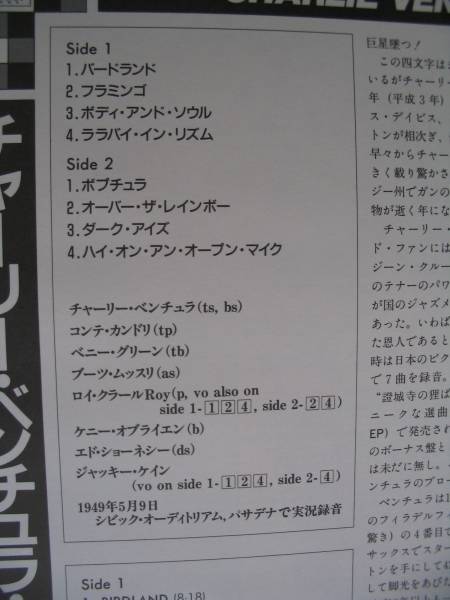 CHARLIE VEN
チャーリー・ベンチュラ・
Side 1
1.バードランド
2.フラミンゴ
3.ボディ・アンド・ソウル
4.ララバイ・イン・リズム
Side 2
1.ボプチュラ
2.オーバー・ザ・レインボー
3.ダーク・アイズ
4.ハイ・オン・アン・オープン・マイク
チャーリー・ベンチュラ(ts, bs)
コンテ・カンドリ(tp)
ベニー・グリーン(tb)
ブーツ・ムッスリ(as)
ロイ・クラールRoy(p, vo also on
side 1-1 2 4, side 2-2 4)
ケニー・オブライエン(b)
エド・ショーネシー(ds)
ジャッキー・ケイン
(vo on side 1-1 2 4, side 2-4)
1949年5月9日
シビック・オーディトリアム, パサデナで実況録音
Side 1
BIRDLAND (8:18)
巨星墜つ!
この四文字は
いるがチャーリー
年(平成3年)
ス・デイビス、
トンが相次ぎ、
早々からチャー
きく載り驚かさ
ジー州でガンの
物が逝く年にな
チャーリー・
ド・ファンには
ジーン・クルー
のテナーのパワ
が国のジャズメ
あった。いわば
た恩人であると
時は日本のビク
で7曲を録音。
“證城寺の狸ば
ニークな選曲
EP)で発売され
のボーナス盤と
は未だに無し。
ンチュラのブロー
ベンチュラは1
のフィラデルフィ
驚き)の4番目で
サックスでスター
トンを手にして
して脚光をあびた